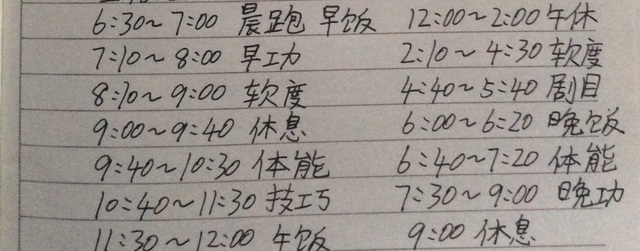 6:30~7:00 晨跑 早饭
7:10~8:00 早功
8:10~9:00 软度
9:00~9:40 休息
9:40~10:30 体能
10:40~11:30 技巧
11:30~12:00 午饭
12:00~2:00 午休
2:10~4:30 软度
4:40~5:40 剧目
6:00~6:20 晚饭
6:40~7:20 体能
7:30~9:00 晚功
9:00 休息